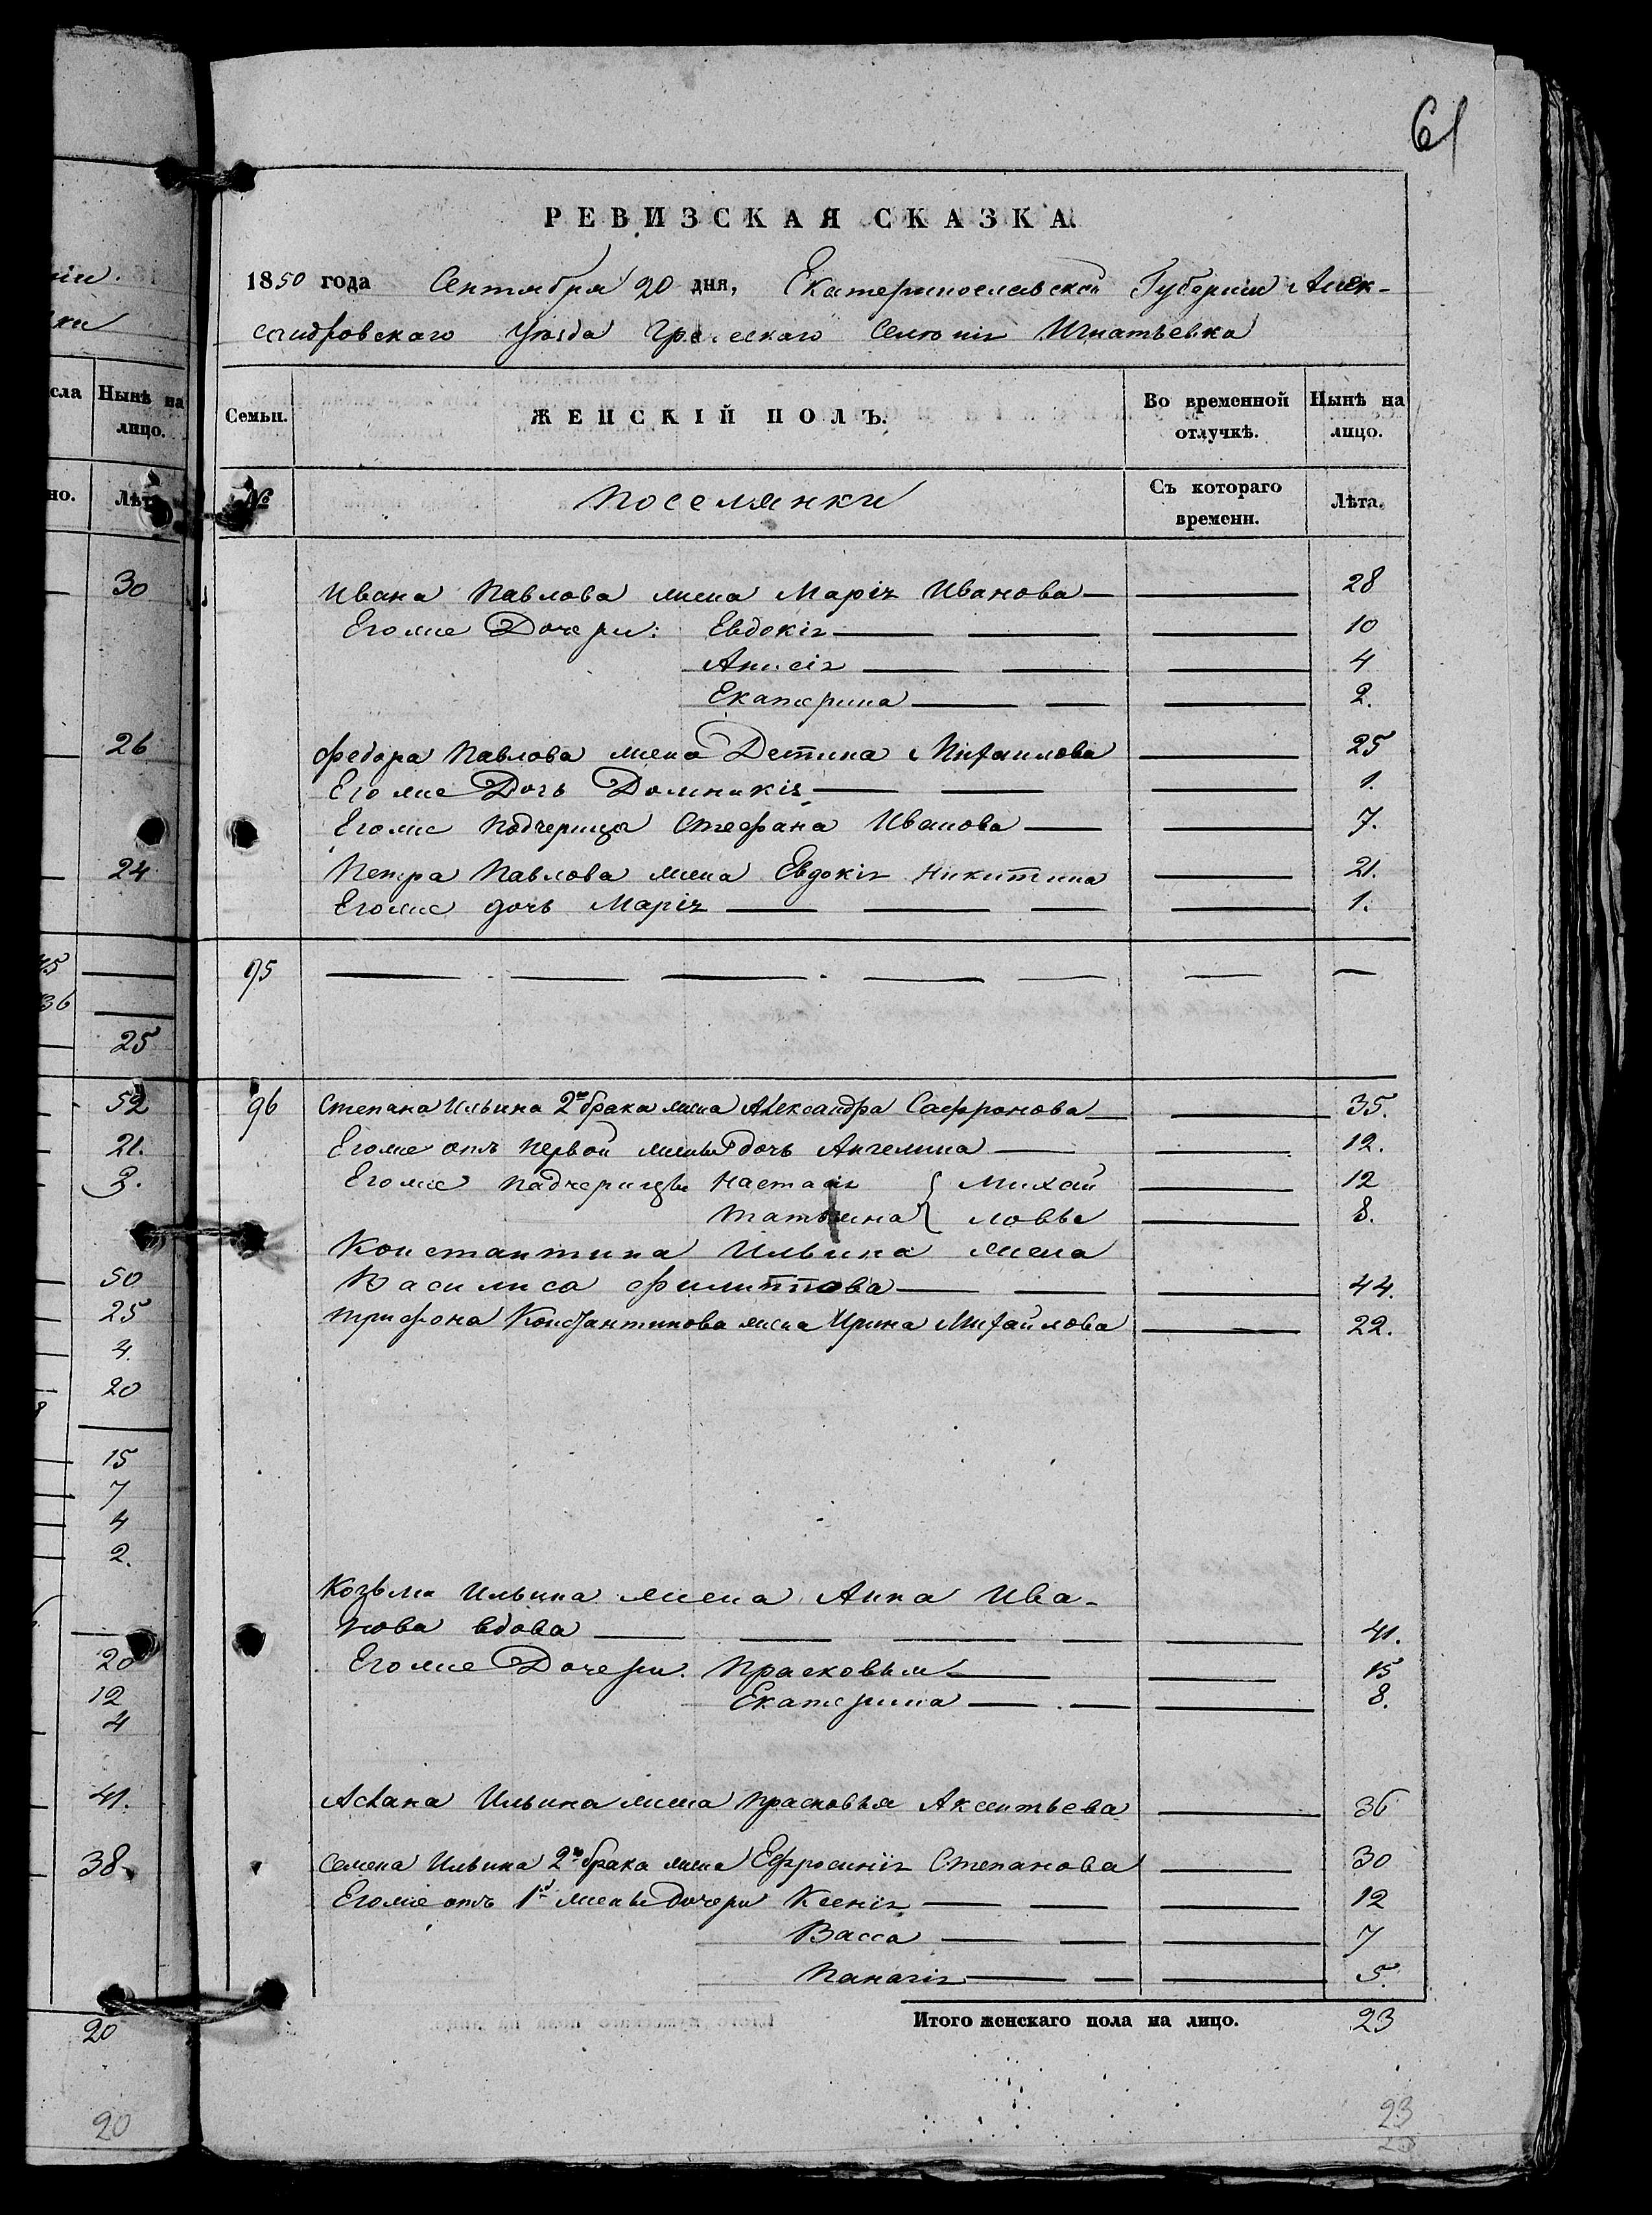 61
РЕВИЗСКАЯ СКАЗКА.
1850 года Сентября 20 дня, Екатеринославской Губернии Алек-
сандровского Уезда Греческаго Селенія Игнатьевка
Семьи. ЖЕНСКІЙ ПОЛЪ. Во временной отлучкѣ. Нынѣ на лицо.
№ Поселянки Съ котораго времени. Лѣта.
Ивана Павлова жена Марія Иванова 28
Его же Дочери: Евдокія 10
Анисія 4
Екатерина 2.
Федора Павлова жена Детина Михаилова 25
Его же Дочь Домникія 1.
Его же Подчерица Стефана Иванова 7.
Петра Павлова жена Евдокія Никитина 21.
Его же дочь Марія 1.
95
96 Степана Ильина 2го брака жена Александра Сафронова 35.
Его же отъ первой жены дочь Ангелина 12.
Его же падчерицы Настасія { Михай 12
Татьяна { ловы 8.
Константина Ильина жена
Василиса Филиппова 44.
Трифона Константинова жена Ирина Михайлова 22.
Козьмы Ильина жена Анна Ива-
нова вдова 41.
Его же Дочери Прасковья 15
Екатерина 8.
Аслана Ильина жена Прасковья Аксентьева 36
Семена Ильина 2го брака жена Ефросинія Степанова 30
Его же отъ 1й жены дочери Ксенія 12
Васса 7
Панагія 5.
Итого женскаго пола на лицо. 23
23
сла Нынѣ на лицо.
но. Лѣта
30
26
24
45
36
25
52
21.
3.
50
25
4.
20
15
7
4
2.
20
12
4
41.
38.
20
20